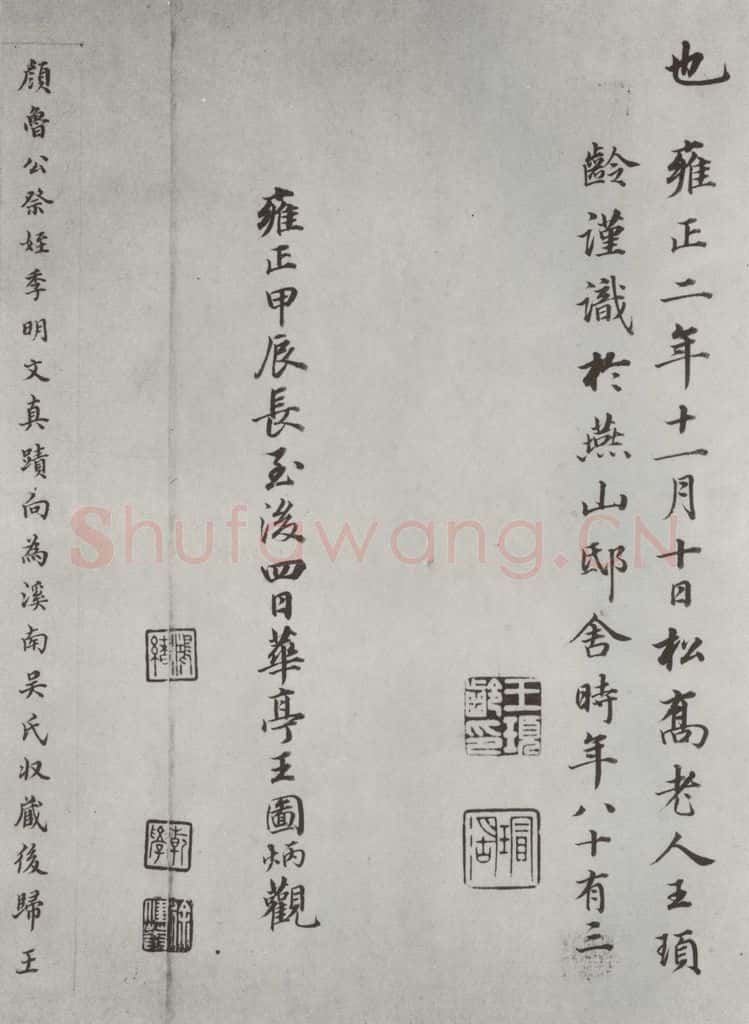 也　雍正二年十一月十日松髙老人王頊
齡謹識於燕山邸舍時年八十有三
王頊
齡印
瑁
湖
雍正甲辰長至後四日華亭王圖炳觀
鴻
緒
乾
學
顔魯公祭姪季明文真蹟向為溪南吴氏收蔵後歸王
Shufawang.CN